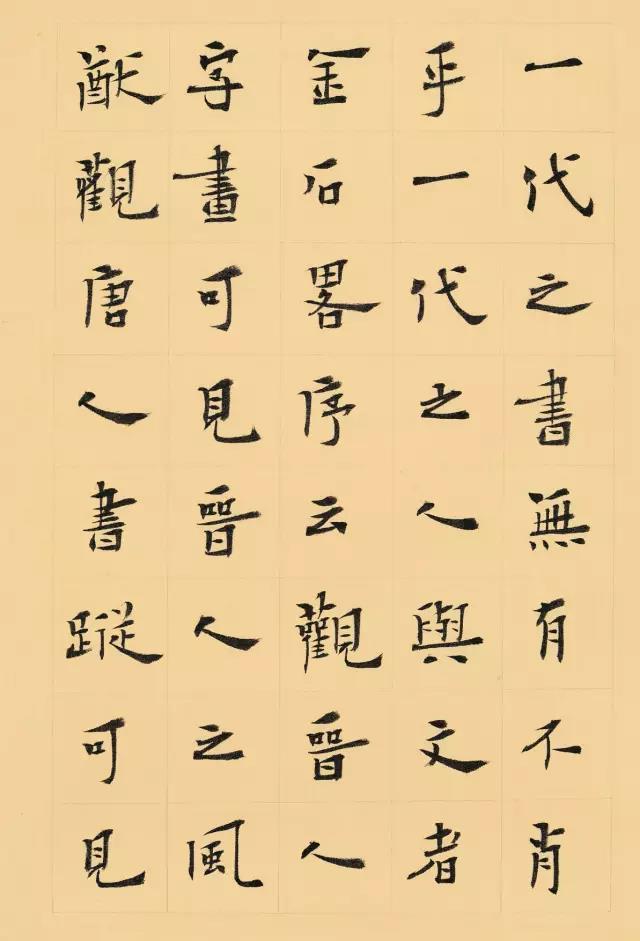 一代之書無有不肖
乎一代之人與文者
金石畧序云觀晉人
字畫可見晉人之風
猷觀唐人書蹤可見